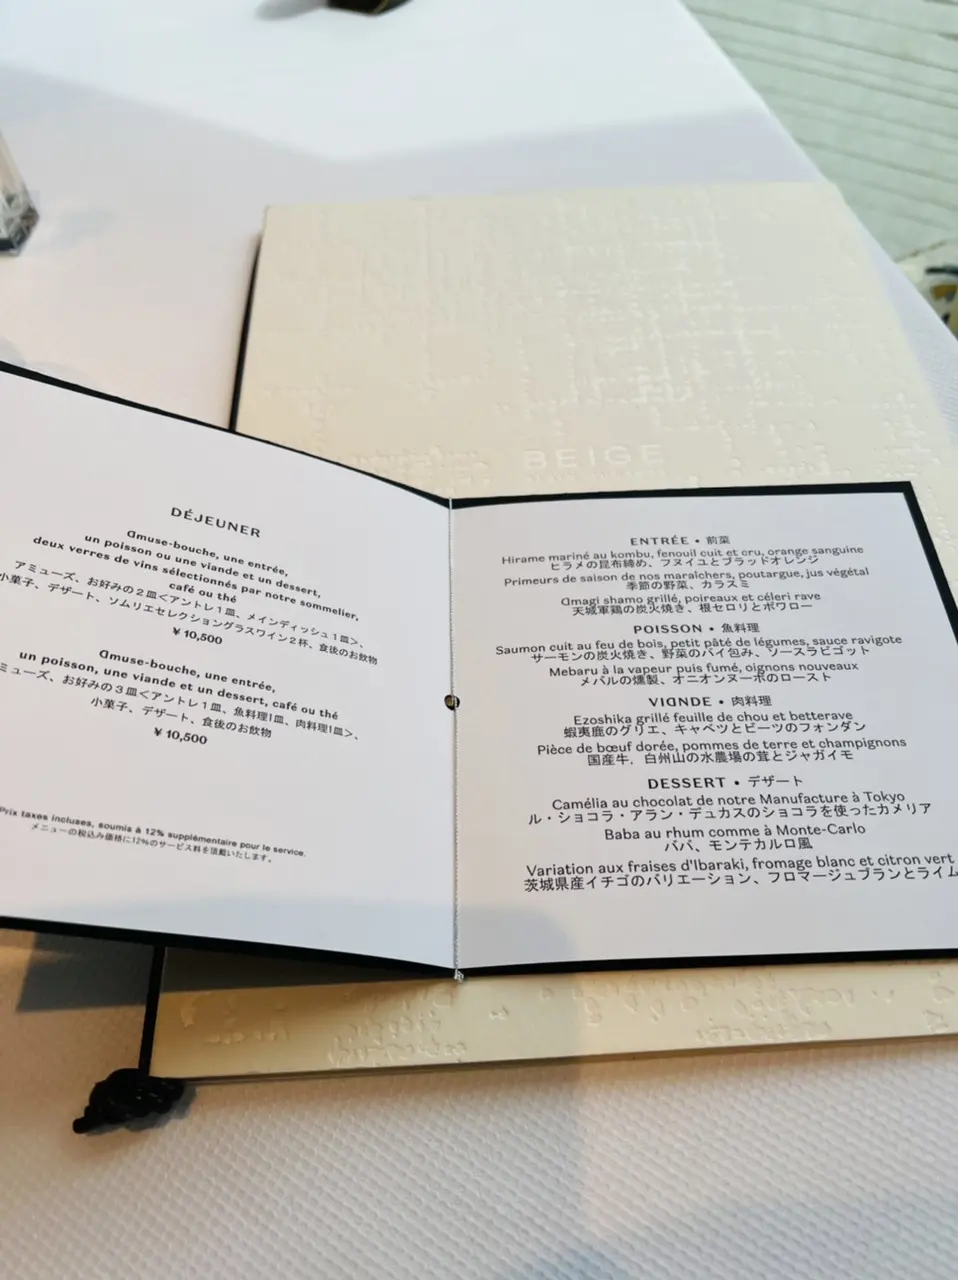 BEIGE
DÉJEUNER
Amuse-bouche, une entrée,
un poisson ou une viande et un dessert,
deux verres de vins sélectionnés par notre sommelier,
café ou thé
アミューズ、お好みの2皿<アントレ1皿、メインディッシュ1皿>、
小菓子、デザート、ソムリエセレクショングラスワイン2杯、食後のお飲物
¥ 10,500
Amuse-bouche, une entrée,
un poisson, une viande et un dessert, café ou thé
ミューズ、お好みの3皿<アントレ1皿、魚料理1皿、肉料理1皿>、
小菓子、デザート、食後のお飲物
¥ 10,500
Prix taxes incluses, soumis à 12% supplémentaire pour le service.
メニューの税込み価格に12%のサービス料を頂戴いたします。
ENTRÉE • 前菜
Hirame mariné au kombu, fenouil cuit et cru, orange sanguine
ヒラメの昆布締め、フヌイユとブラッドオレンジ
Primeurs de saison de nos maraîchers, poutargue, jus végétal
季節の野菜、カラスミ
Amagi shamo grillé, poireaux et céleri rave
天城軍鶏の炭火焼き、根セロリとポワロー
POISSON • 魚料理
Saumon cuit au feu de bois, petit pâté de légumes, sauce ravigote
サーモンの炭火焼き、野菜のパイ包み、ソースラビゴット
Mebaru à la vapeur puis fumé, oignons nouveaux
メバルの燻製、オニオンヌーボのロースト
VIANDE • 肉料理
Ezoshika grillé feuille de chou et betterave
蝦夷鹿のグリエ、キャベツとビーツのフォンダン
Pièce de bœuf dorée, pommes de terre et champignons
国産牛、白州山の水農場の茸とジャガイモ
DESSERT • デザート
Camélia au chocolat de notre Manufacture à Tokyo
ル・ショコラ・アラン・デュカスのショコラを使ったカメリア
Baba au rhum comme à Monte-Carlo
ババ、モンテカルロ風
Variation aux fraises d'Ibaraki, fromage blanc et citron vert
茨城県産イチゴのバリエーション、フロマージュブランとライム